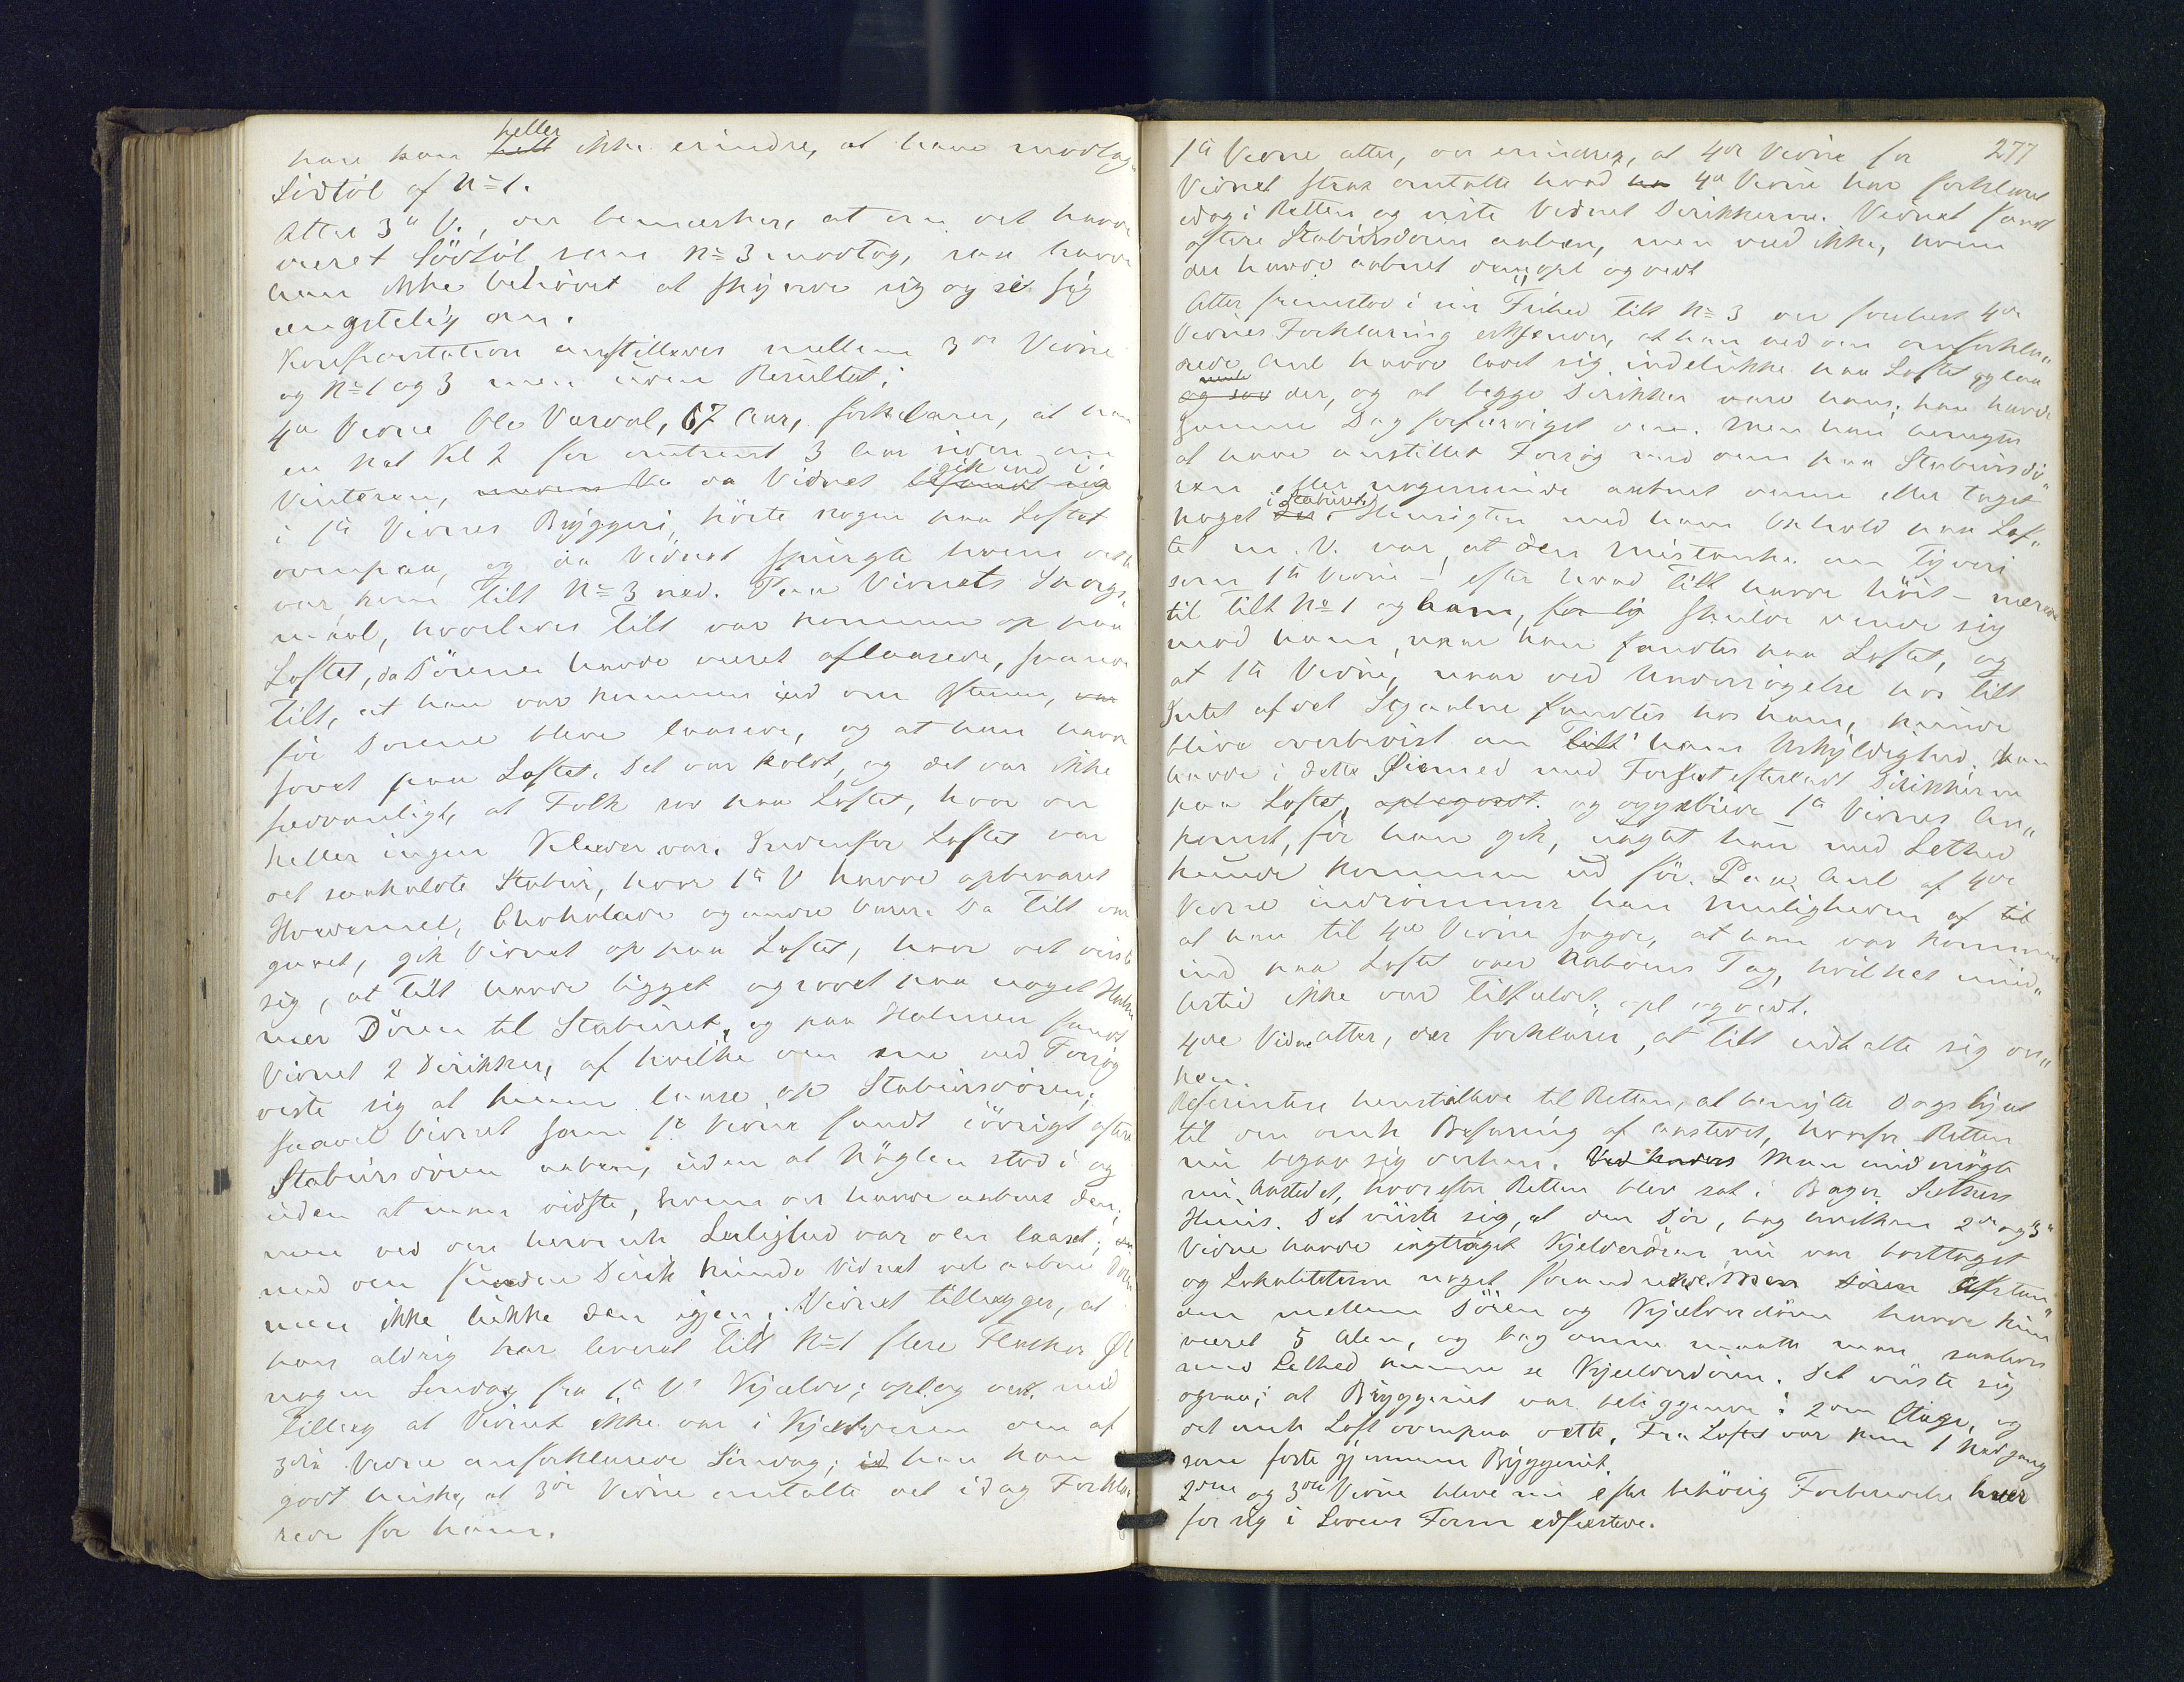 han kan heller ikke erindre, at have modtag
Södtöl af No 1.
Atter 3die V., der bemærker, at om det havde
været Södtöl som No 3 modtog, saa havde
han ikke behövet at skjende sig og se sig
ængstelig om.
Konfrontation anstilledes mellem 3die Vidne
og No 1 og 3 men uden Resultat;
4de Vidne Ole Varval, 67 Aar, forklarer, at han
en Nat Kl 2 for omtrent 3 Aar siden om
Vinteren, da Vidnet gik ind i
i 1ste Vidnes Bryggeri, hörte nogen paa Loftet
ovenpaa, og da Vidnet spurgte hvem det
var, kom Tilt No 3 ned. Paa Vidnets Spörgs„
maal, hvorledes Tilt var kommen op paa
Loftet, da Dörene havde været aflaasede, svarede
Tilt, at han var kommen ind om
för Dorene bleve laasede, og at han havde
sovet paa Loftet. Det var koldt, og det var ikke
sædvanligt, at Folk sov paa Loftet, hvor der
heller ingen Klæder var. Indenfor Loftet var
det saakaldte Stabur, hvor 1ste V havde opbevaret
Hvedemel, Chokolade og andre Varer. Da Tilt var
gaaet, gik Vidnet op paa Loftet, hvor det viste
sig, at Tilt havde ligget og sovet paa noget Halm
nær Dören til Staburet, og paa Halmen fandt
Vidnet 2 Dirikker, af hvilke den ene ved Forsög
viste sig at kunne laase op Stabursdören;
saavel Vidnet som 1ste Vidne fandt iövrigt oftere
Stabursdören aaben, uden at Nöglen stod i og
uden at man vidste, hvem der havde aabnet den;
men ved den heromh Leilighed var den laaset;
med den fundne Dirik kunde Vidnet vel aabne Dören
men ikke lukke den igjen; Vidnet tillægger, at
han aldrig har leveret Tilt No 1 flere Flasker Öl
nogen Söndag fra 1ste V's Kjælder; opl og vedt. med
Tillæg at Vidnet ikke var i Kjælderen den af
3die Vidne omforklarede Söndag; han kan
godt huske, at 3die Vidne omtalte det idag Forkla
rede for ham.
277
1ste Vidne atter, der erindrer, at 4de Vidne for
Vidnet strax omtalte hvad 4de Vidne har forklaret
idag i Retten og viste Vidnet Dirikkerne. Vidnet fandt
oftere Stabursdören aaben, men veed ikke, hvem
der havde aabnet den; opl og vedt
Atter fremstod i sin Frihed Tilt No 3 der foreholdt 4de
Vidnes Forklaring erkjender, at han ved den omforkla„
rede Anl havde ladet sig indelukke paa Loftet og laa
der, og at begge Dirikker vare hans; han havde
samme Dag forfærdiget dem. Men han benegter
at have anstillet Forsög med dem paa Stabursdö„
ren eller nogensinde aabnet denne eller taget
noget i Staburet. Hensigten med hans Ophold paa Lof„
tet m. V. var, at den Mistanke om Tyveri
som 1ste Vidne – efter hvad Tilt havde hört – nærede
til Tilt No 1 og ham, skulde vende sig
mod ham, naar han fandtes paa Loftet, og
at 1ste Vidne, naar ved Undersögelse hos Tilt
Intet af det Stjaalne fandtes hos ham, kunde
blive overbevist om hans Uskyldighed. Han
havde i dette Öiemed med Forsæt efterladt Dirikkerne
paa Loftet, og oppebiede 1ste Vidnes An„
komst, för han gik, uagtet han med Lethed
kunde kommen ud för. Paa Anl af 4de
Vidne indrömmer han Muligheden af
at han til 4de Vidne sagde, at han var kommen
ind paa Loftet over Naboens Tag, hvilket imid„
lertid ikke var Tilfældet; opl og vedt.
4de Vidne atter, der forklarer, at Tilt udtalte sig der„
hen.
Referenten henstillede til Retten, at benytte Dagslyset
til den omh Befaring af Aastedet, hvorfor Retten
nu begav sig derhen. Man undersögte
nu Aastedet, hvorefter Retten blev sat i Bager
Huus. Det viiste sig, at den Dör, bag hvilken 2det og 3die
Vidne havde iagttaget Kjelderdören, nu var borttaget
og Lokaliteterne noget forandrede. Men Afstan„
den mellem Dören og Kjælderdören havde kun
været 5 Alen, og bag denne maatte man saaledes
med Lethed kunne se Kjælderdören. Det viiste sig
ogsaa, at Bryggeriet var beliggende i 2den Etage, og
det omh Loft ovenpaa dette. Fra Loftet var kun 1 Nedgang
som förte gjennem Bryggeriet.
2det og 3die Vidne bleve nu efter behörig Forberedelse hver
for sig i Lovens Form edfæstede.